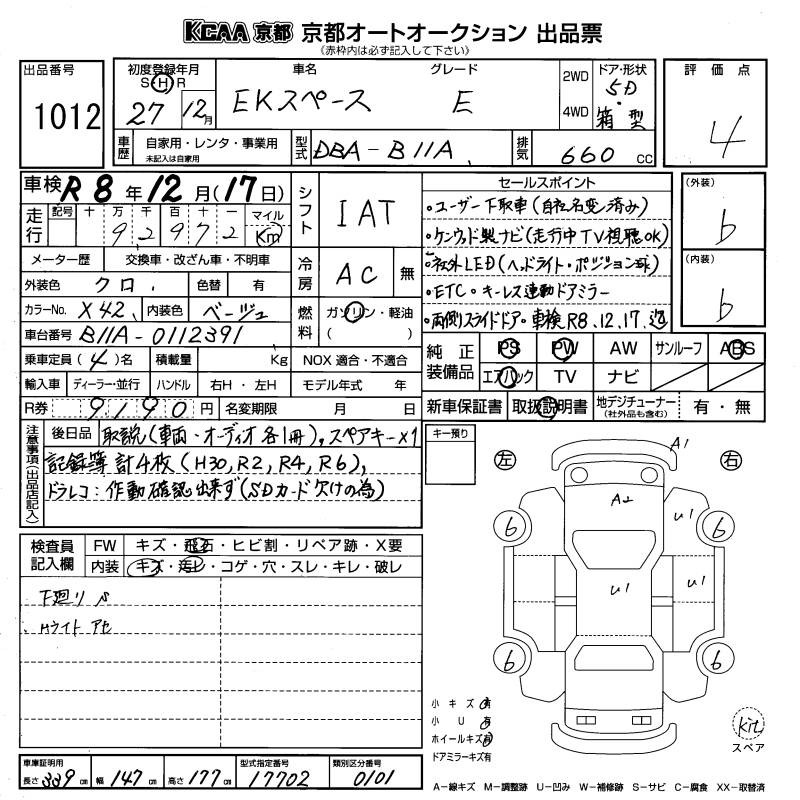 KCAA 京都 京都オートオークション 出品票
(赤枠内は必ず記入して下さい)
出品番号 1012
初度登録年月 S H R 27 12月
車名 EKスペース
グレード E
2WD 4WD
ドア・形状 5D・箱型
評価点 4
車歴 自家用・レンタ・事業用
未記入は自家用
型式 DBA-B11A
排気 660 CC
車検 R8年12月(17日)
走行 記号 十 万 千 百 十 一 マイル
92972 Km
シフト IAT
セールスポイント
・ユーザー下取車(自社名変済み)
・ケンウッド製ナビ(走行中TV視聴OK)
・社外LED(ヘッドライト・ポジション球)
・ETC・キーレス連動ドアミラー
・両側スライドドア・車検R8.12.17.迄
(外装) b
(内装) b
メーター歴 交換車・改ざん車・不明車
冷房 AC 無
外装色 クロ 色替 有
カラーNo. X42 内装色 ベージュ
燃料 ガソリン・軽油
( )
車台番号 B11A-0112391
乗車定員(4)名 積載量 Kg NOX 適合・不適合
輸入車 ディーラー・並行 ハンドル 右H・左H モデル年式 年
R券 9190円 名変期限 月 日
純正装備品 PS PW AW サンルーフ ABS
エアバック TV ナビ
新車保証書 取扱説明書 地デジチューナー 有・無
(社外品も含む)
注意事項(出品店記入)
後日品 取説(車両・オーディオ各1冊),スペアキー×1
記録簿 計4枚(H30,R2,R4,R6),
ドラレコ:作動確認出来ず(SDカード欠けの為)
キー預り
左 右
A1
A2
U1
U1
U1
6 6
6 6
検査員記入欄 FW キズ・飛石・ヒビ割・リペア跡・X要
内装 キズ・汚レ・コゲ・穴・スレ・キレ・破レ
下廻り
Hライト アセ
小キズ 有
小U 有
ホイールキズ 有
ドアミラーキズ有
kit
スペア
車庫証明用 長さ339cm 幅147cm 高さ177cm
型式指定番号 17702
類別区分番号 0101
A-線キズ M-調整跡 U-凹み W-補修跡 S-サビ C-腐食 XX-取替済